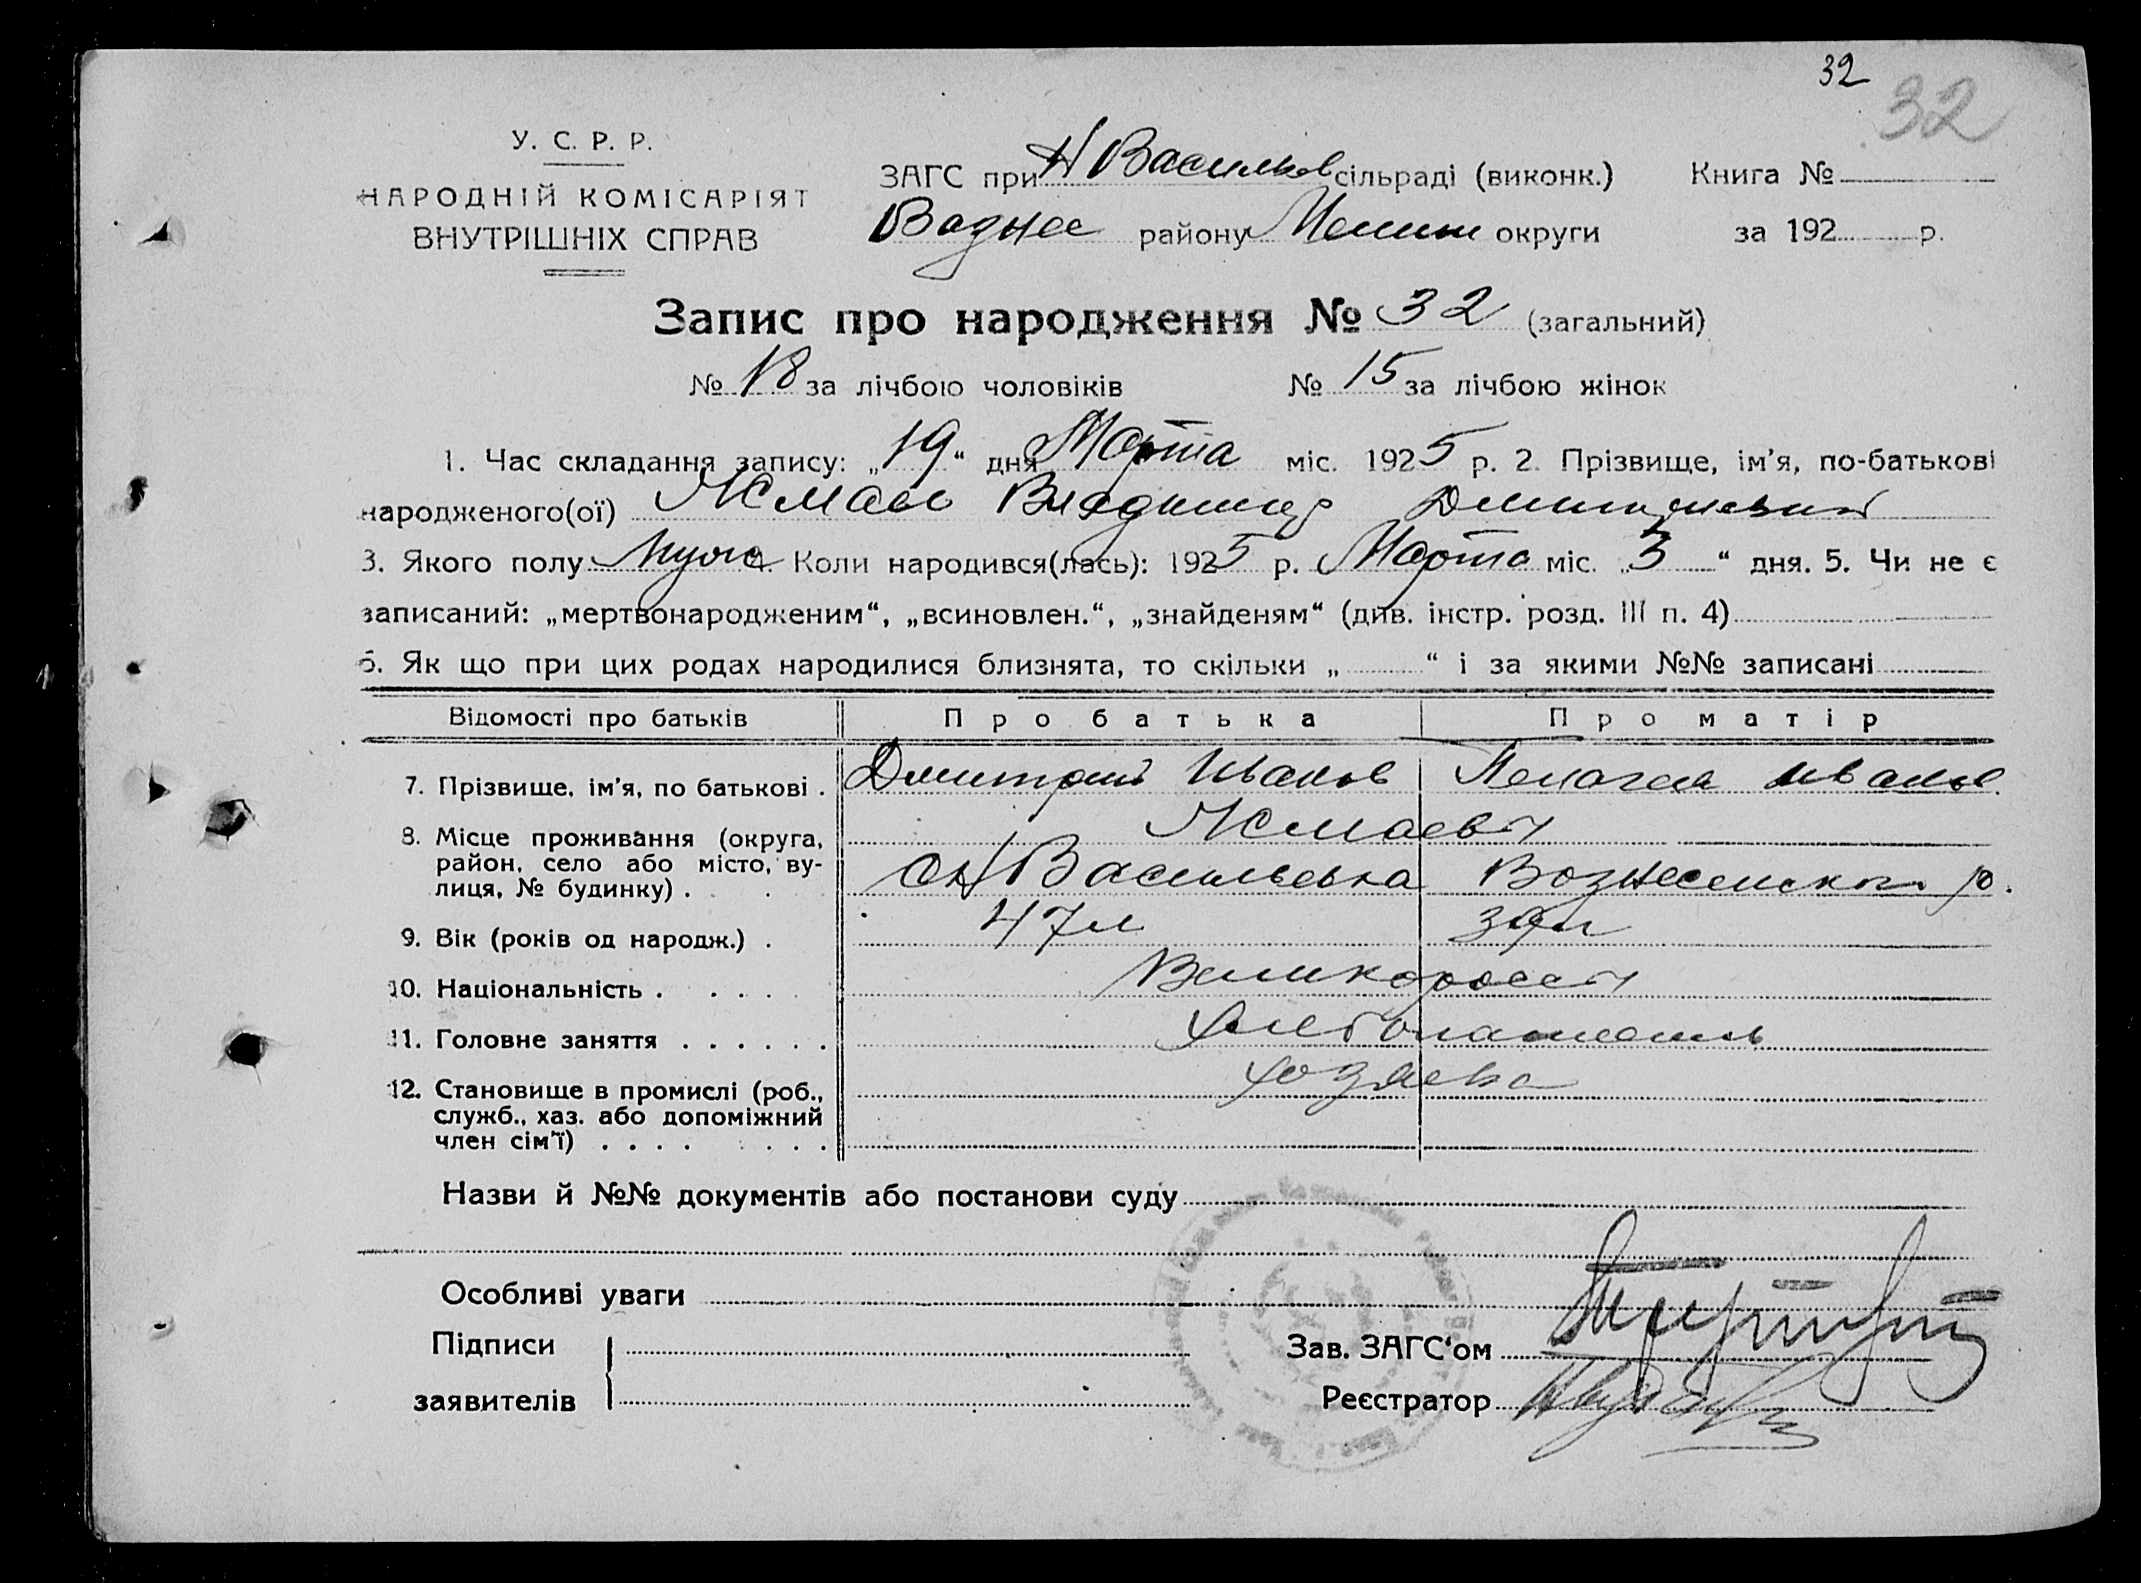 32
32
У. С. Р. Р.
НАРОДНІЙ КОМІСАРІЯТ
ВНУТРІШНІХ СПРАВ
ЗАГС при Н Васильев сільраді (виконк.) Книга №
Вознес району округи за 192 р.
Запис про народження № 32 (загальний)
№ 18 за лічбою чоловіків № 15 за лічбою жінок
1. Час складання запису: „19“ дня Марта міс. 1925 р. 2. Прізвище, ім'я, по-батькові
народженого(ої) Владимир Дмитриевич
3. Якого полу Муж 4. Коли народився(лась): 1925 р. Марта міс. „3“ дня. 5. Чи не є
записаний: „мертвонародженим“, „всиновлен.“, „знайденям“ (див. інстр. розд. III п. 4)
6. Як що при цих родах народилися близнята, то скільки „ “ і за якими №№ записані
Відомості про батьків Про батька Про матір
7. Прізвище, ім'я, по батькові . Дмитрий Иванов Пелагея Иванов.
8. Місце проживання (округа,
район, село або місто, ву-
лиця, № будинку) . . с Н Васильевка Вознесенского р.
9. Вік (років од народж.) . 47 л 39 л
10. Національність . . . . . Великоросы
11. Головне заняття . . . . . . Хлебопашець
12. Становище в промислі (роб.,
служб., хаз. або допоміжний
член сім'ї) . . . . . . . . хозяева
Назви й №№ документів або постанови суду
Особливі уваги
Підписи
заявителів
Зав. ЗАГС'ом
Реєстратор